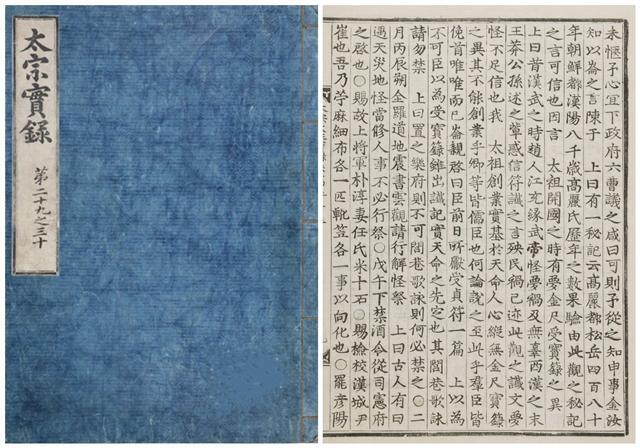 太宗實錄
第二十九之三十
未愜予心宜下政府六曹議之咸曰可則予從之知申事金汝
知以崙之言陳于 上曰有一秘記云高麗都松岳四百八十
年朝鮮都漢陽八千歲高麗氏歷年之數果驗由此觀之秘記
之言可信也因言 太祖開國之時有夢金尺受寶籙之異
上曰昔漢武之時趙人江充緣武帝怪夢禍及無辜西漢之末
王莽公孫述之輩惑信符讖之言殃民禍己迹此觀之讖文夢
怪不足信也我 太祖創業實基於天命人心縱無金尺寶籙
之異其不能創業乎卿等皆儒臣也何論說之至此乎羣臣皆
俛首唯唯而已崙親啓曰臣前日所獻受貞符一篇 上以爲
不可臣以爲受寶籙雖出讖記實天命之先定也其閭巷歌詠
請勿禁 上曰置之樂府則不可閭巷歌詠則何必禁之○二
月丙辰朔全羅道地震書雲觀請行解怪祭 上曰古人有曰
遇天災地怪當修人事不必行祭○戊午下禁酒令從司憲府
之啓也○賜故上將軍朴淳妻任氏米十石○賜檢校漢城尹
崔也吾乃苧麻細布各一匹靴笠各一事以向化也○罷彥陽